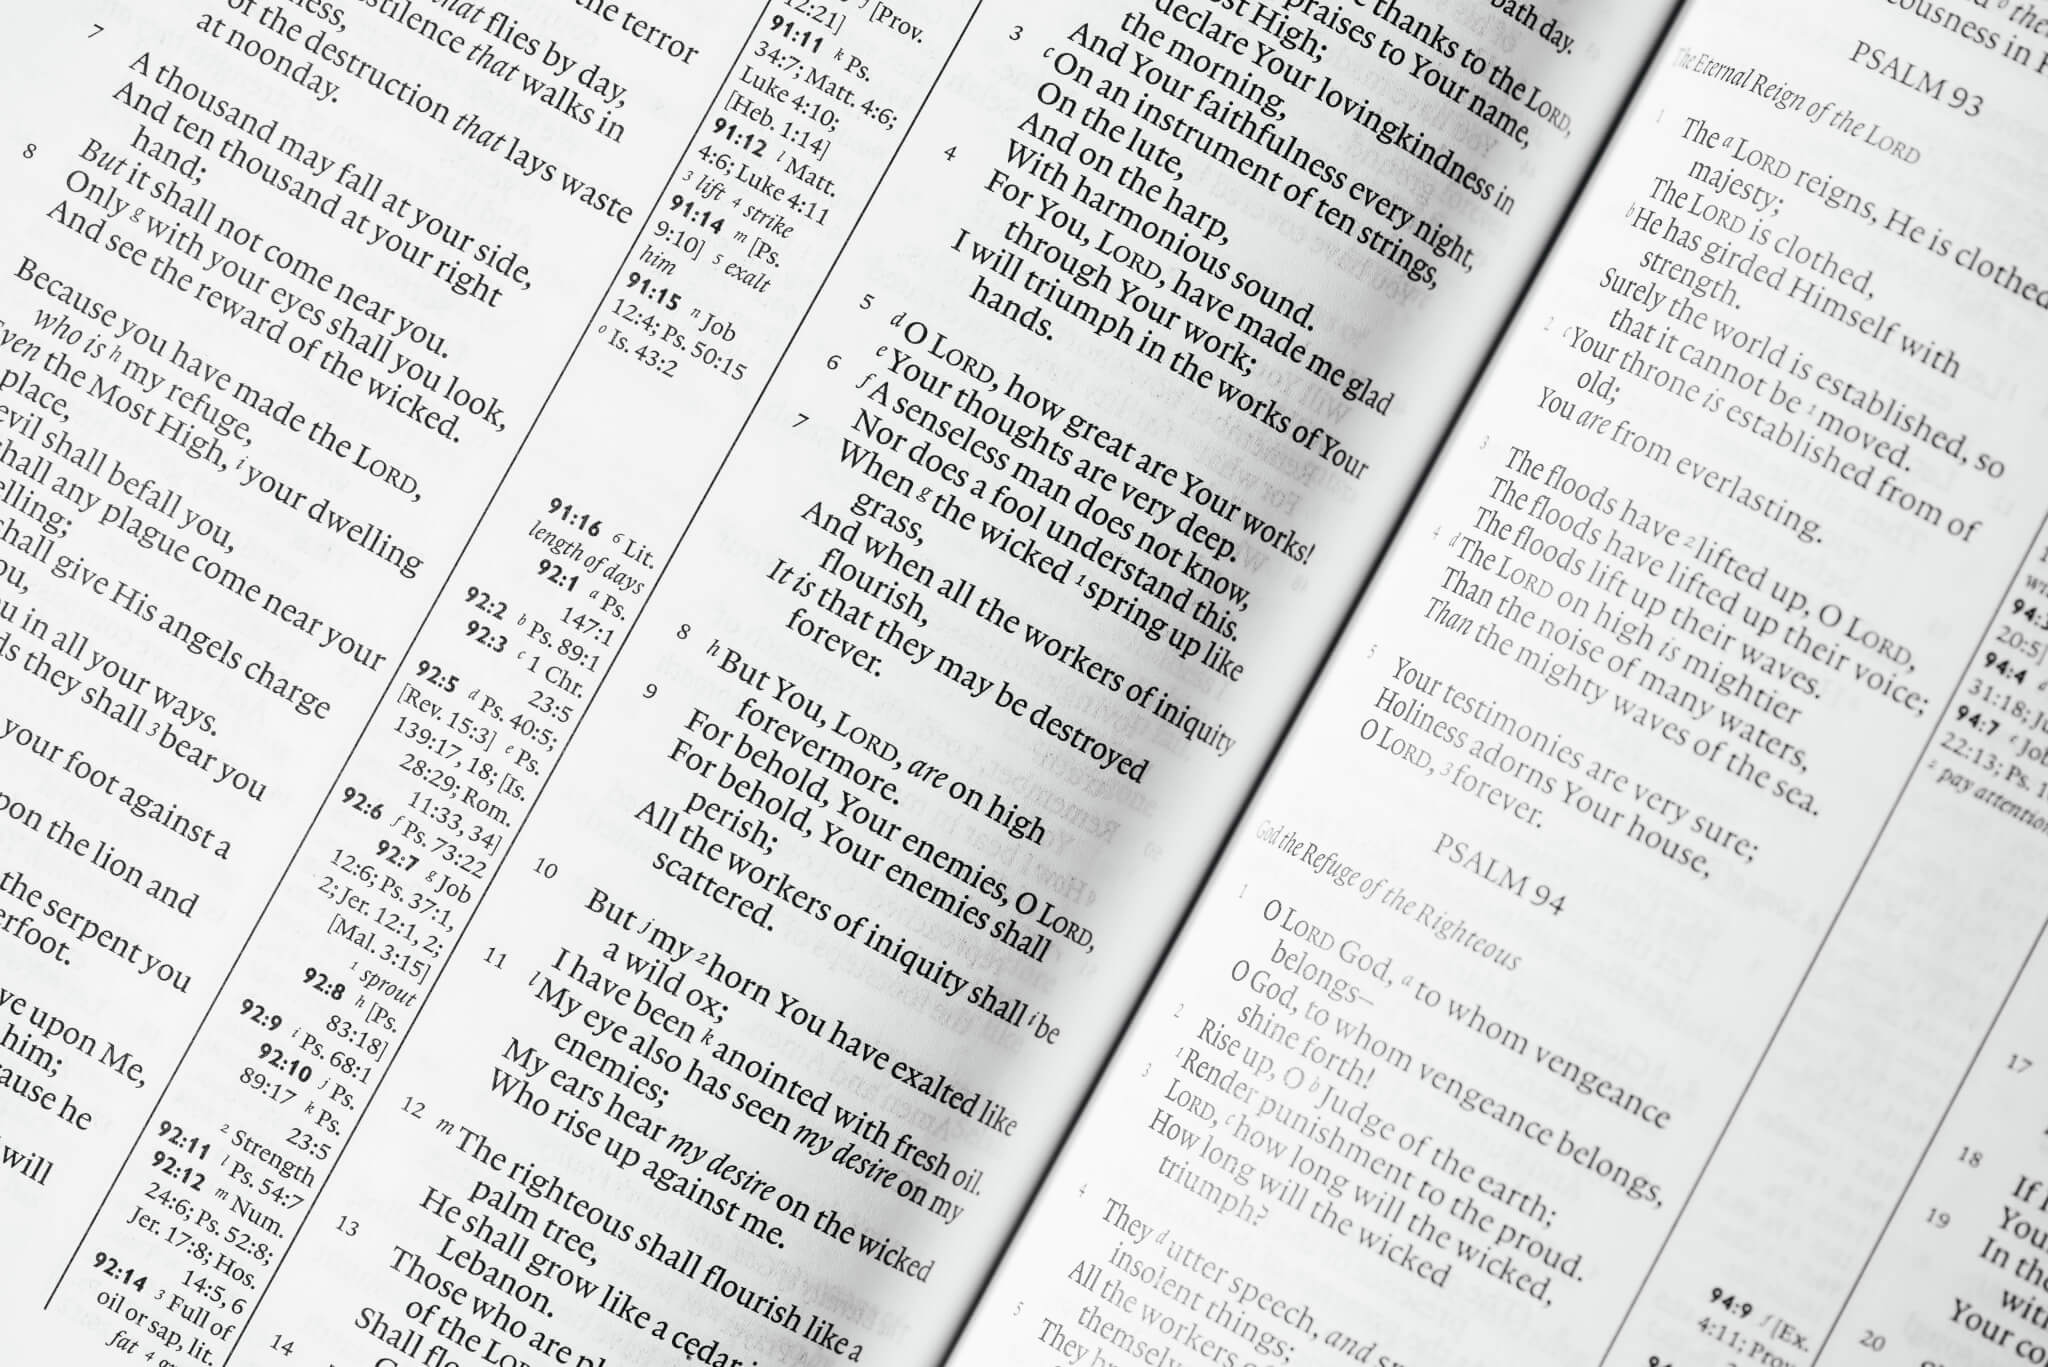 the terror
that flies by day,
stilence that walks in
of the destruction that lays waste
at noonday.
7
A thousand may fall at your side,
And ten thousand at your right
hand;
8
But it shall not come near you.
Only g with your eyes shall you look,
And see the reward of the wicked.
Because you have made the LORD,
who is h my refuge,
Even the Most High, i your dwelling
place,
evil shall befall you,
shall any plague come near your
elling;
shall give His angels charge
ou,
u in all your ways.
ds they shall 3 bear you
your foot against a
pon the lion and
the serpent you
erfoot.
ve upon Me,
him;
ause he
will
[Prov.
12:21]
91:11 k Ps.
34:7; Matt. 4:6;
Luke 4:10;
[Heb. 1:14]
91:12 l Matt.
4:6; Luke 4:11
3 lift 4 strike
91:14 m [Ps.
9:10] 5 exalt
him
91:15 n Job
12:4; Ps. 50:15
o Is. 43:2
91:16 6 Lit.
length of days
92:1 a Ps.
147:1
92:2 b Ps. 89:1
92:3 c 1 Chr.
23:5
92:5 d Ps. 40:5;
[Rev. 15:3] e Ps.
139:17, 18; [Is.
28:29; Rom.
11:33, 34]
92:6 f Ps. 73:22
92:7 g Job
12:6; Ps. 37:1,
2; Jer. 12:1, 2;
[Mal. 3:15]
1 sprout
92:8 h [Ps.
83:18]
92:9 i Ps. 68:1
92:10 j Ps.
89:17 k Ps.
23:5
2 Strength
92:11 l Ps. 54:7
92:12 m Num.
24:6; Ps. 52:8;
Jer. 17:8; Hos.
14:5, 6
92:14 3 Full of
oil or sap, lit.
fat 4
bath day.
thanks to the LORD,
praises to Your name,
ost High;
declare Your lovingkindness in
the morning,
And Your faithfulness every night,
3
c On an instrument of ten strings,
On the lute,
And on the harp,
With harmonious sound.
4
For You, LORD, have made me glad
through Your work;
I will triumph in the works of Your
hands.
5
d O LORD, how great are Your works!
e Your thoughts are very deep.
6
f A senseless man does not know,
Nor does a fool understand this.
7
When g the wicked 1 spring up like
grass,
And when all the workers of iniquity
flourish,
It is that they may be destroyed
forever.
8
h But You, LORD, are on high
forevermore.
9
For behold, Your enemies, O LORD,
For behold, Your enemies shall
perish;
All the workers of iniquity shall i be
scattered.
10
But j my 2 horn You have exalted like
a wild ox;
I have been k anointed with fresh oil.
11
l My eye also has seen my desire on my
enemies;
My ears hear my desire on the wicked
Who rise up against me.
12
m The righteous shall flourish like a
palm tree,
He shall grow like a cedar
Lebanon.
13
Those who are pl
of the LOR
Shall flo
14
ousness in
PSALM 93
The Eternal Reign of the LORD
1
The a LORD reigns, He is clothed
majesty;
The LORD is clothed,
b He has girded Himself with
strength.
Surely the world is established, so
that it cannot be 1 moved.
2
c Your throne is established from of
old;
You are from everlasting.
3
The floods have 2 lifted up, O LORD,
The floods have lifted up their voice;
The floods lift up their waves.
4
d The LORD on high is mightier
Than the noise of many waters,
Than the mighty waves of the sea.
5
Your testimonies are very sure;
Holiness adorns Your house,
O LORD, 3 forever.
PSALM 94
God the Refuge of the Righteous
1
O LORD God, a to whom vengeance
belongs—
O God, to whom vengeance belongs,
shine forth!
2
Rise up, O b Judge of the earth;
1 Render punishment to the proud.
3
LORD, c how long will the wicked,
How long will the wicked
triumph?
4
They d utter speech, and sp
insolent things;
All the workers
themselv
5
They br
20:5]
94:4
31:18; Ju
94:7 e Job
22:13; Ps. 1
2 pay attention
94:9 f [Ex.
4:11; Prov
17
18
If I
19
You
In the
with
Your co
20